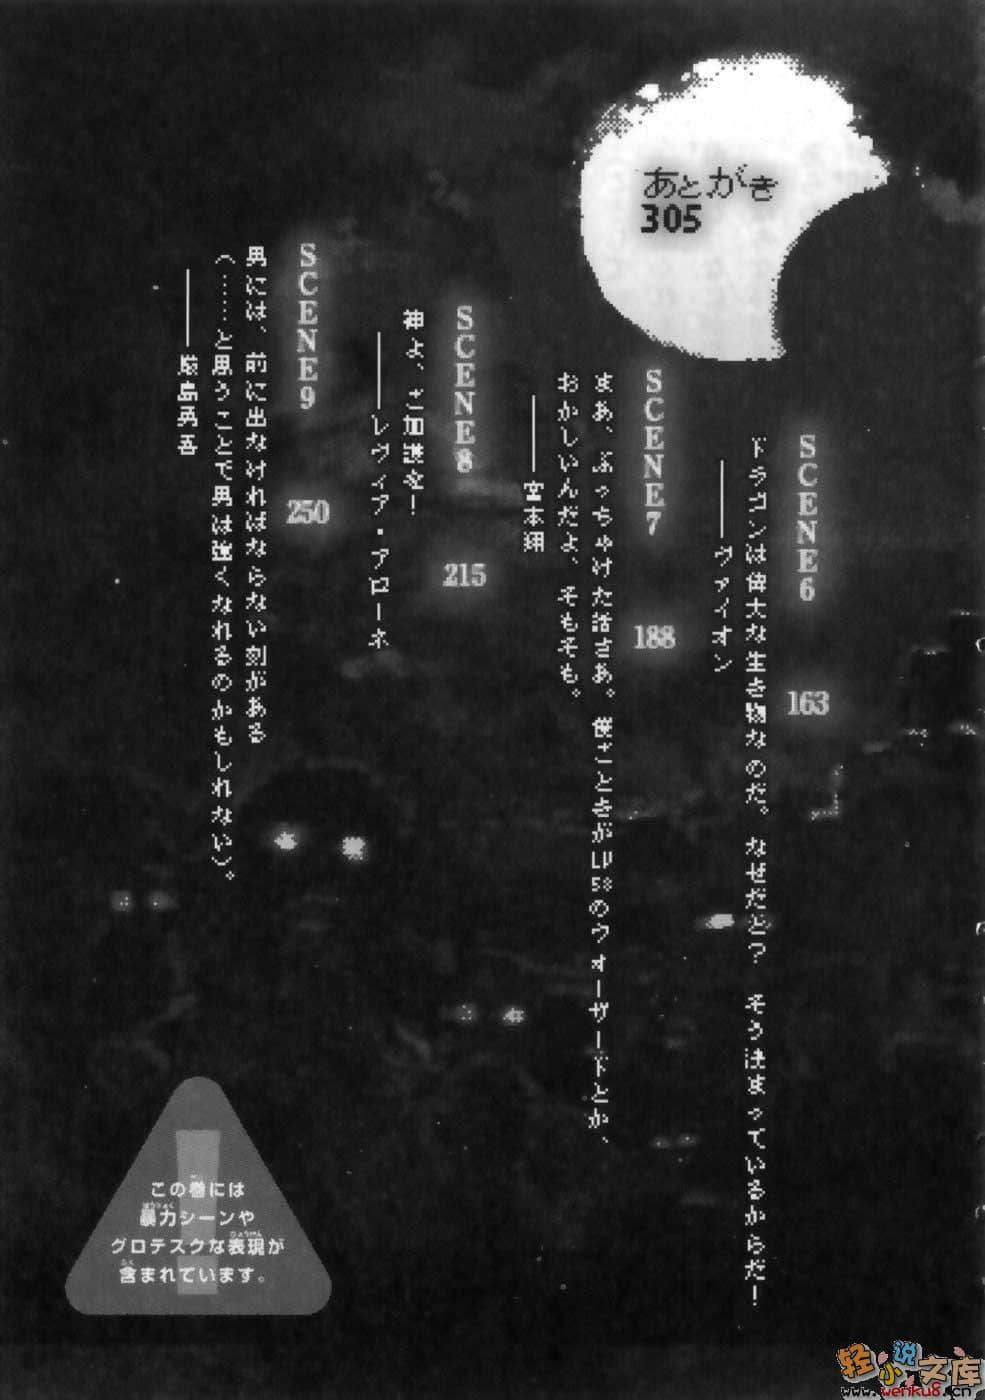 SCENE6 163
ドラゴンは偉大な生き物なのだ。なぜだと？　そう決まっているからだ！
――ヴァイオン
SCENE7 188
まあ、ぶっちゃけた話さあ。僕ごときがLV58のウォーザードとか、
おかしいんだよ、そもそも。
――宮本翔
SCENE8 215
神よ、ご加護を！
――レヴィア・アローネ
SCENE9 250
男には、前に出なければならない刻がある
（……と思うことで男は強くなれるのかもしれない）。
――厳島勇吾
あとがき
305
この巻には
暴力シーンや
グロテスクな表現が
含まれています。
轻小说文库
www.wenku8.cn